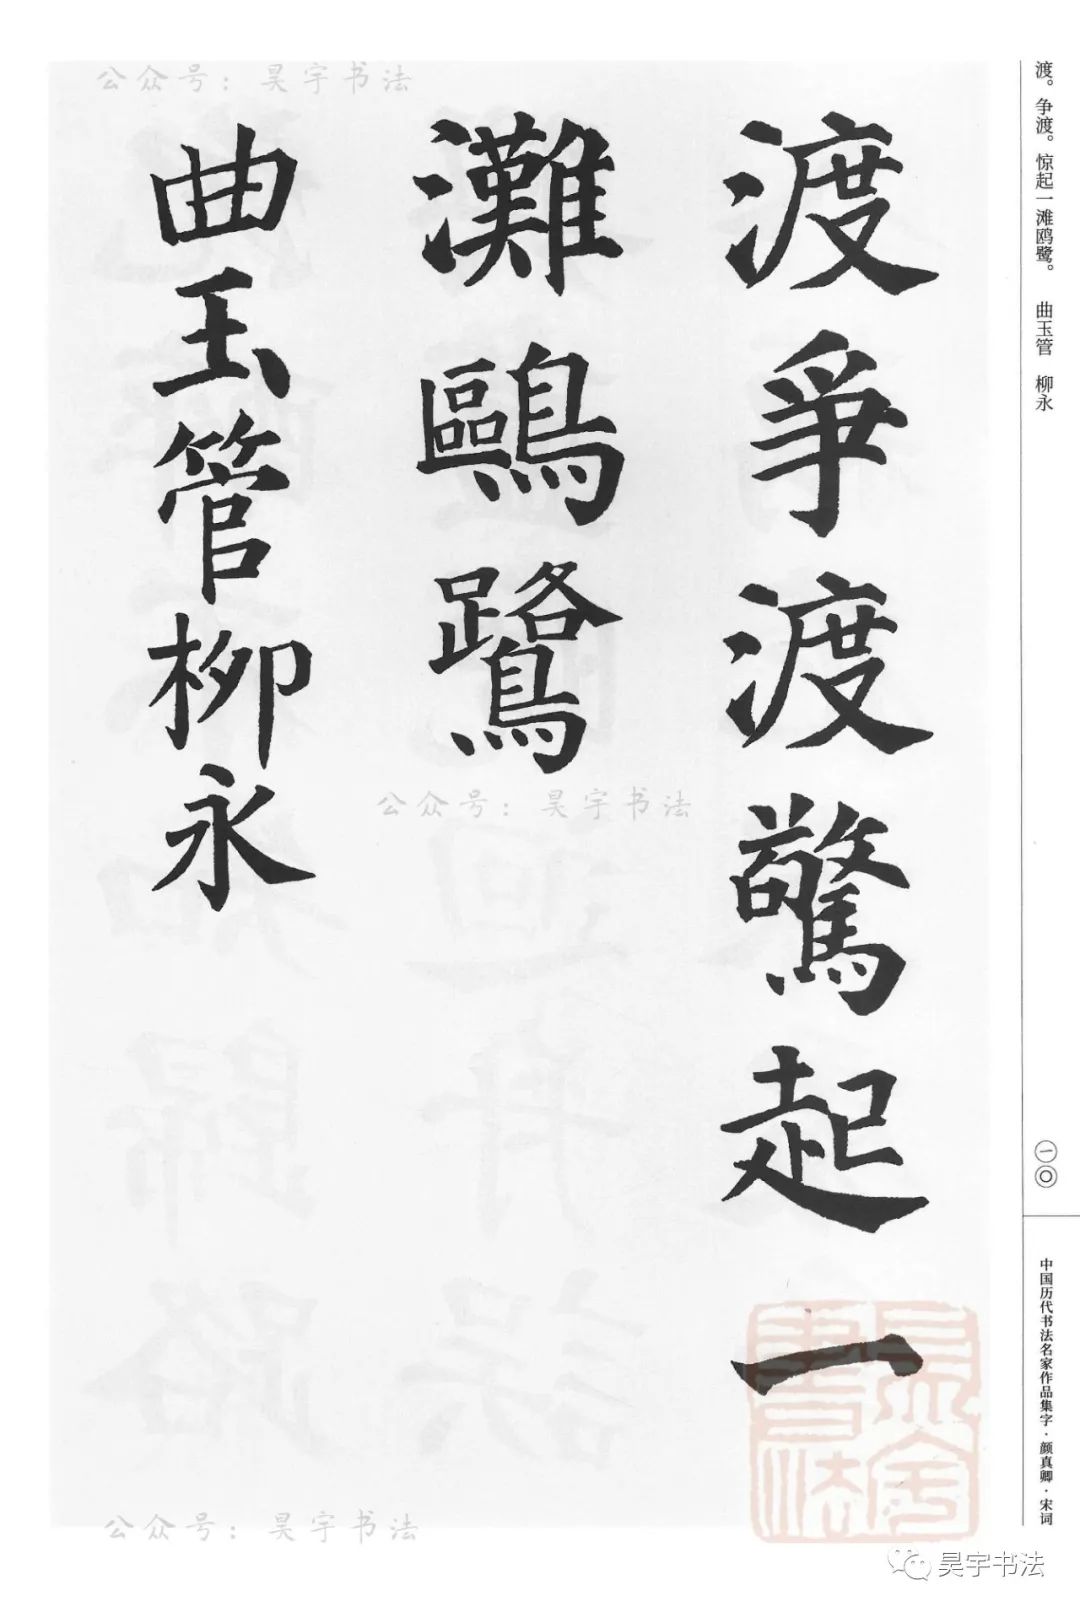 渡爭渡驚起一
灘鷗鷺
曲玉管柳永
渡。争渡。惊起一滩鸥鹭。 曲玉管 柳永
一〇
中国历代书法名家作品集字·颜真卿·宋词
公众号：昊宇书法
公众号：昊宇书法
公众号：昊宇书法
昊宇書法
昊宇书法